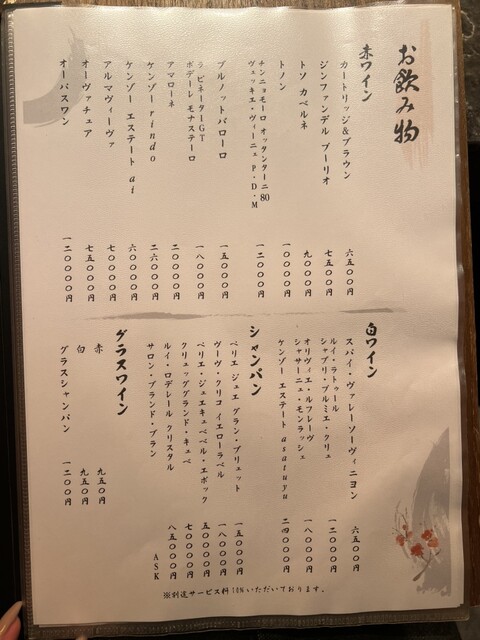 お飲み物
赤ワイン
カートリッジ&ブラウン 六五〇〇円
ジンファンデル ブーリオ 七五〇〇円
トソ カベルネ 九〇〇〇円
トノン 一〇〇〇〇円
チンニョモーロ オッタンターニ80
ヴェッキエ・ヴィーニュ P・D・M 一二〇〇〇円
ブルノット バローロ 一五〇〇〇円
ラ ピネータGT
ボデーレ モナステーロ 一八〇〇〇円
アマローネ 二〇〇〇〇円
ケンゾー rindo 二六〇〇〇円
ケンゾー エステート ai 六〇〇〇〇円
アルマヴィーヴァ 七〇〇〇〇円
オーヴァチュア 七五〇〇〇円
オーパスワン 一二〇〇〇〇円
白ワイン
スパイ・ヴァレーソーヴィニヨン 六五〇〇円
ルイ・ラトゥール
シャブリ・プルミエ・クリュ 一二〇〇〇円
オリヴィエ・ルフレーヴ
シャサーニュ・モンラッシェ 一八〇〇〇円
ケンゾー エステート asatuyu 二四〇〇〇円
シャンパン
ペリエ ジュエ グラン・ブリュット 一五〇〇〇円
ヴーヴ・クリコ イエローラベル 一八〇〇〇円
ペリエ・ジュエキュベベル・エポック 五〇〇〇〇円
クリュッググランド・キュベ 七〇〇〇〇円
ルイ・ロデレール クリスタル 八五〇〇〇円
サロン・ブランド・ブラン ASK
グラスワイン
赤 九五〇円
白 九五〇円
グラスシャンパン 一二〇〇円
※別途サービス料10%いただいております。